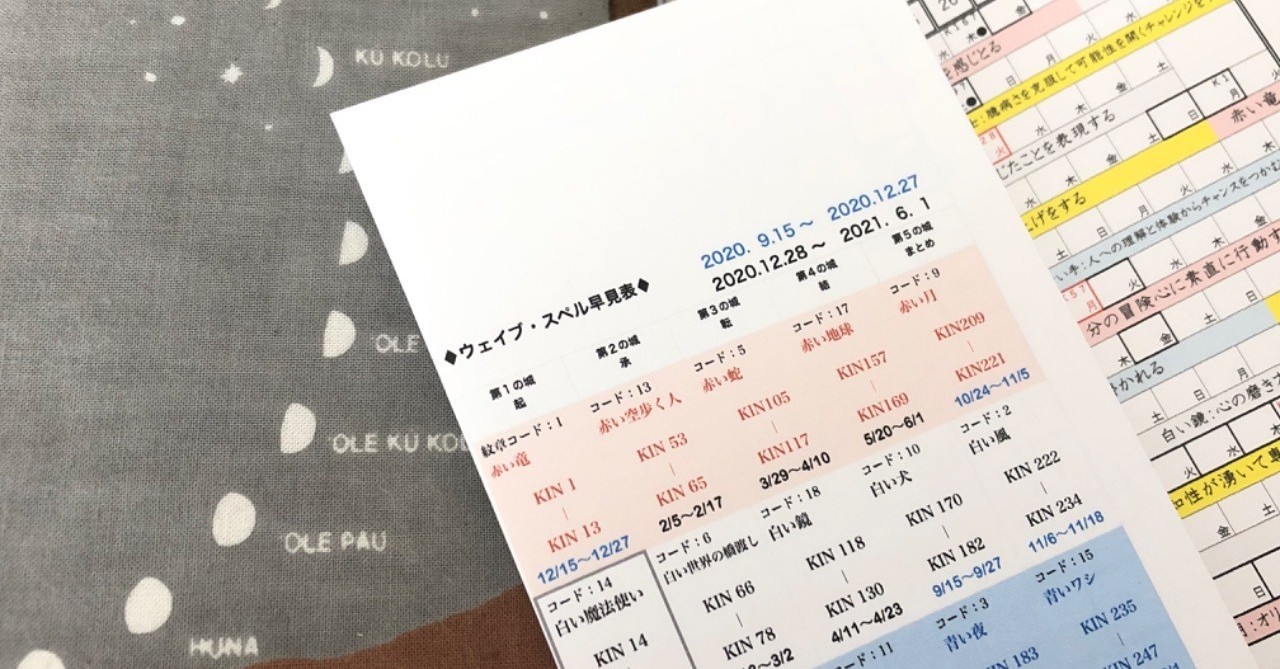 KŪ KOLU
OLE
OLE KŪ KOL
OLE PAU
HUNA
◆ウェイブ・スペル早見表◆
2020. 9.15～ 2020.12.27
2020.12.28～ 2021. 6. 1
第1の城
起
第2の城
承
第3の城
転
第4の城
結
第5の城
まとめ
紋章コード：1
赤い竜
KIN 1
|
KIN 13
12/15～12/27
コード：13
赤い空歩く人
KIN 53
|
KIN 65
2/5～2/17
コード：5
赤い蛇
KIN105
|
KIN117
3/29～4/10
コード：17
赤い地球
KIN157
|
KIN169
5/20～6/1
コード：9
赤い月
KIN209
|
KIN221
10/24～11/5
コード：14
白い魔法使い
KIN 14
コード：6
白い世界の橋渡し
KIN 66
|
KIN 78
～3/2
コード：18
白い鏡
KIN 118
|
KIN 130
4/11～4/23
コード：10
白い犬
KIN 170
|
KIN 182
9/15～9/27
コード：2
白い風
KIN 222
|
KIN 234
11/6～11/18
コード：11
コード：3
青い夜
KIN 183
コード：15
青いワシ
KIN 235
|
KIN 247
を感じとる
：臆病さを克服して可能性を開くチャレンジを
じたことを表現する
赤い竜
上げをする
い手：人への理解と体験からチャンスをつかむ
分の冒険心に素直に行動す
かれる
白い鏡：心の磨き
知性が湧いて専